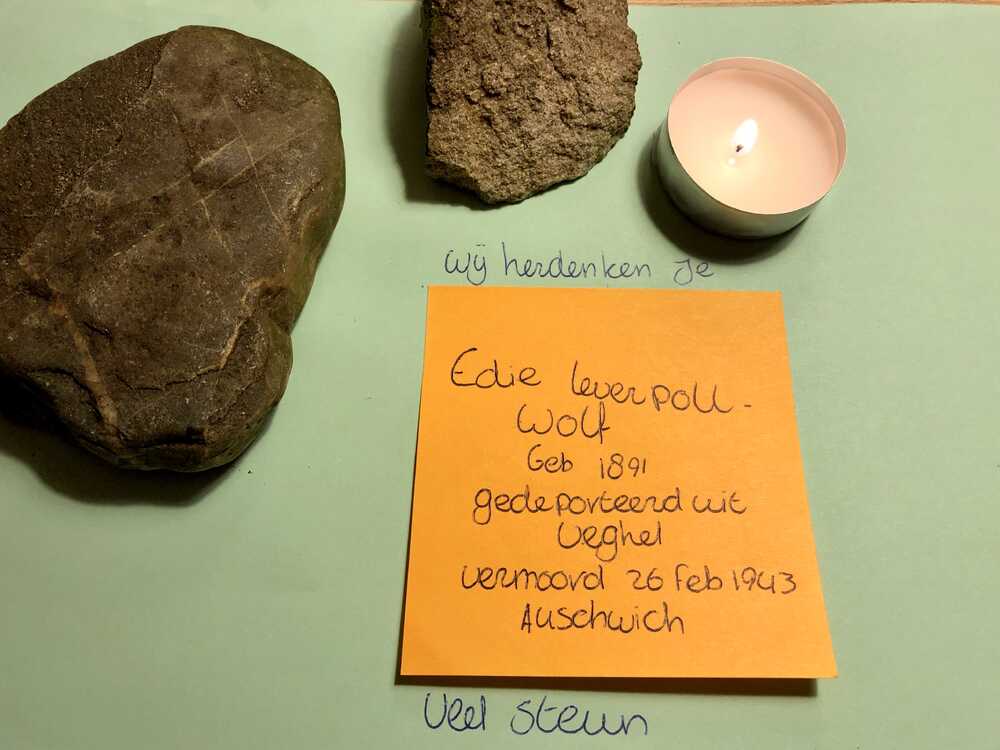 Wij herdenken je
Edie leverpoll-
Wolf
Geb 1891
gedeporteerd uit
Veghel
vermoord 26 feb 1943
Auschwich
Veel steun